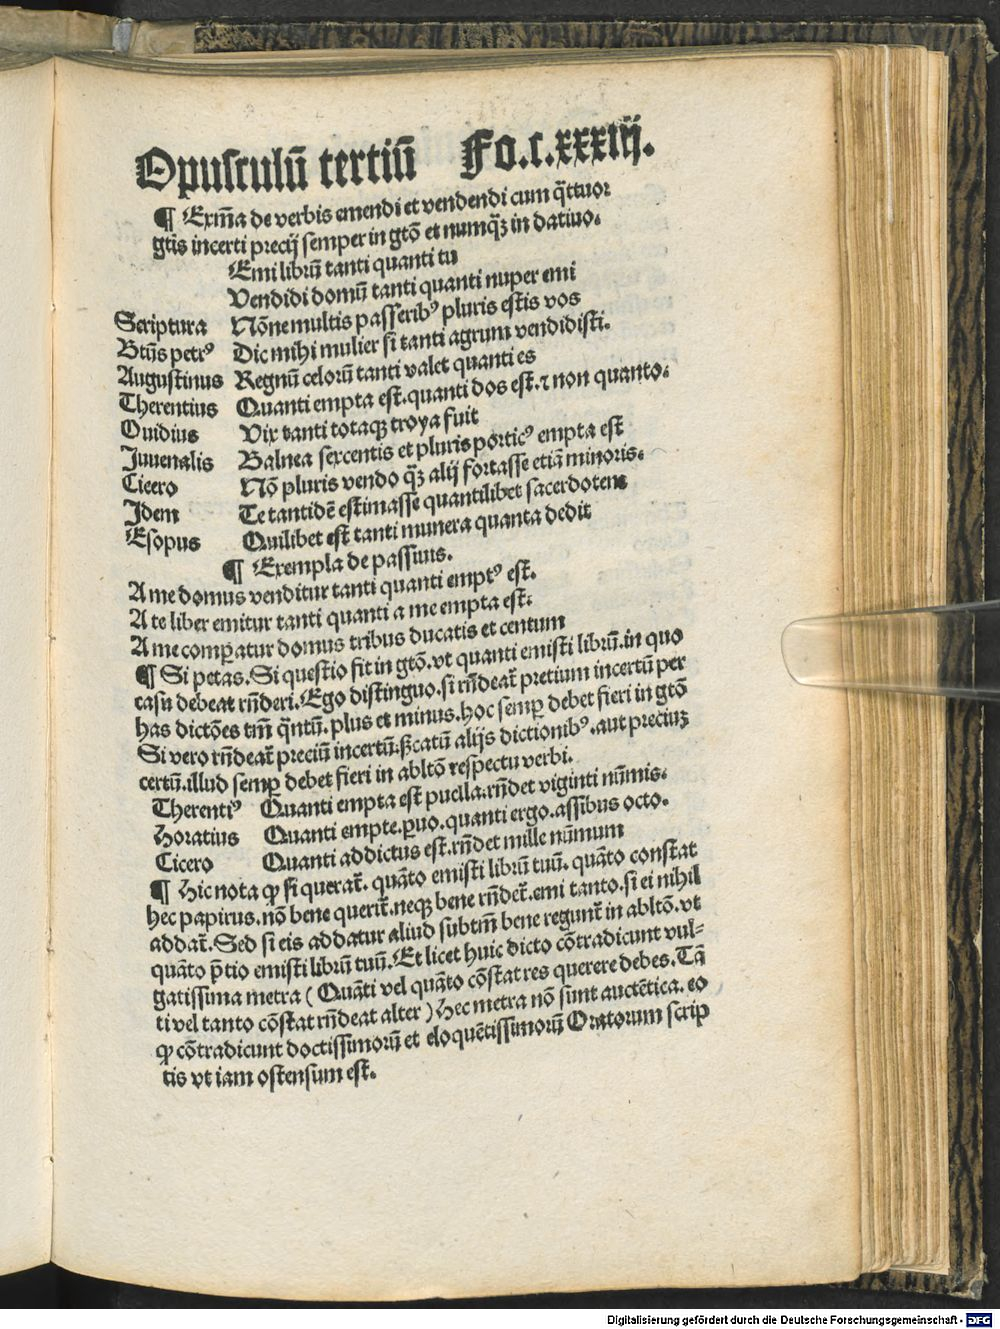 Opusculū tertiū Fo.c.xxxiij.
¶ Exm̄a de verbis emendi et vendendi cum q̄ttuor
gtīs incerti precij semper in gtō et numqꝫ in datiuo.
Emi librū tanti quanti tu
Vendidi domū tanti quanti nuper emi
Scriptura Nōne multis passeribꝰ pluris estis vos
Btūs petrꝰ Dic mihi mulier si tanti agrum vendidisti.
Augustinus Regnū celorū tanti valet quanti es
Therentius Quanti empta est. quanti dos est. ⁊ non quanto.
Ouidius Vix tanti totaqꝫ troya fuit
Juuenalis Balnea sexcentis et pluris porticꝰ empta est
Cicero Nō pluris vendo qꝫ̄ alij fortasse etiā minoris.
Idem Te tantidē estimasse quantilibet sacerdotem
Esopus Quilibet est tanti munera quanta dedit
¶ Exempla de passiuis.
A me domus venditur tanti quanti emptꝰ est.
A te liber emitur tanti quanti a me empta est.
A me comꝑatur domus tribus ducatis et centum
¶ Si petas. Si questio fit in gtō. vt quanti emisti librū. in quo
casu debeat rn̄deri. Ego distinguo. si rn̄deat̄ pretium incertū per
has dictōes tm̄ q̄ntū. plus et minus. hoc semꝑ debet fieri in gtō
Si vero rn̄deat̄ preciū incertū. ßcatū alijs dictionibꝰ. aut preciuꝫ
certū. illud semꝑ debet fieri in abltō respectu verbi.
Therentiꝰ Quanti empta est puella. rn̄det viginti nūmis.
Horatius Quanti empte. ꝑuo. quanti ergo. assibus octo.
Cicero Quanti addictus est. rn̄det mille nūmum
¶ Hic nota ꝙ si querat̄. quāto emisti librū tuū. quāto constat
hec papirus. nō bene querit̄. neqꝫ bene rn̄det̄. emi tanto. si ei nihil
addat̄. Sed si eis addatur aliud subtm̄ bene regunt̄ in abltō. vt
quāto p̄tio emisti librū tuū. Et licet huic dicto cōtradicunt vul-
gatissima metra ( Quāti vel quāto cōstat res querere debes. Tā
ti vel tanto cōstat rn̄deat alter ) Hec metra nō sunt auctētica. eo
ꝙ cōtradicunt doctissimorū et eloquētissimorū Oratorum scrip
tis vt iam ostensum est.
Digitalisierung gefördert durch die Deutsche Forschungsgemeinschaft - DFG